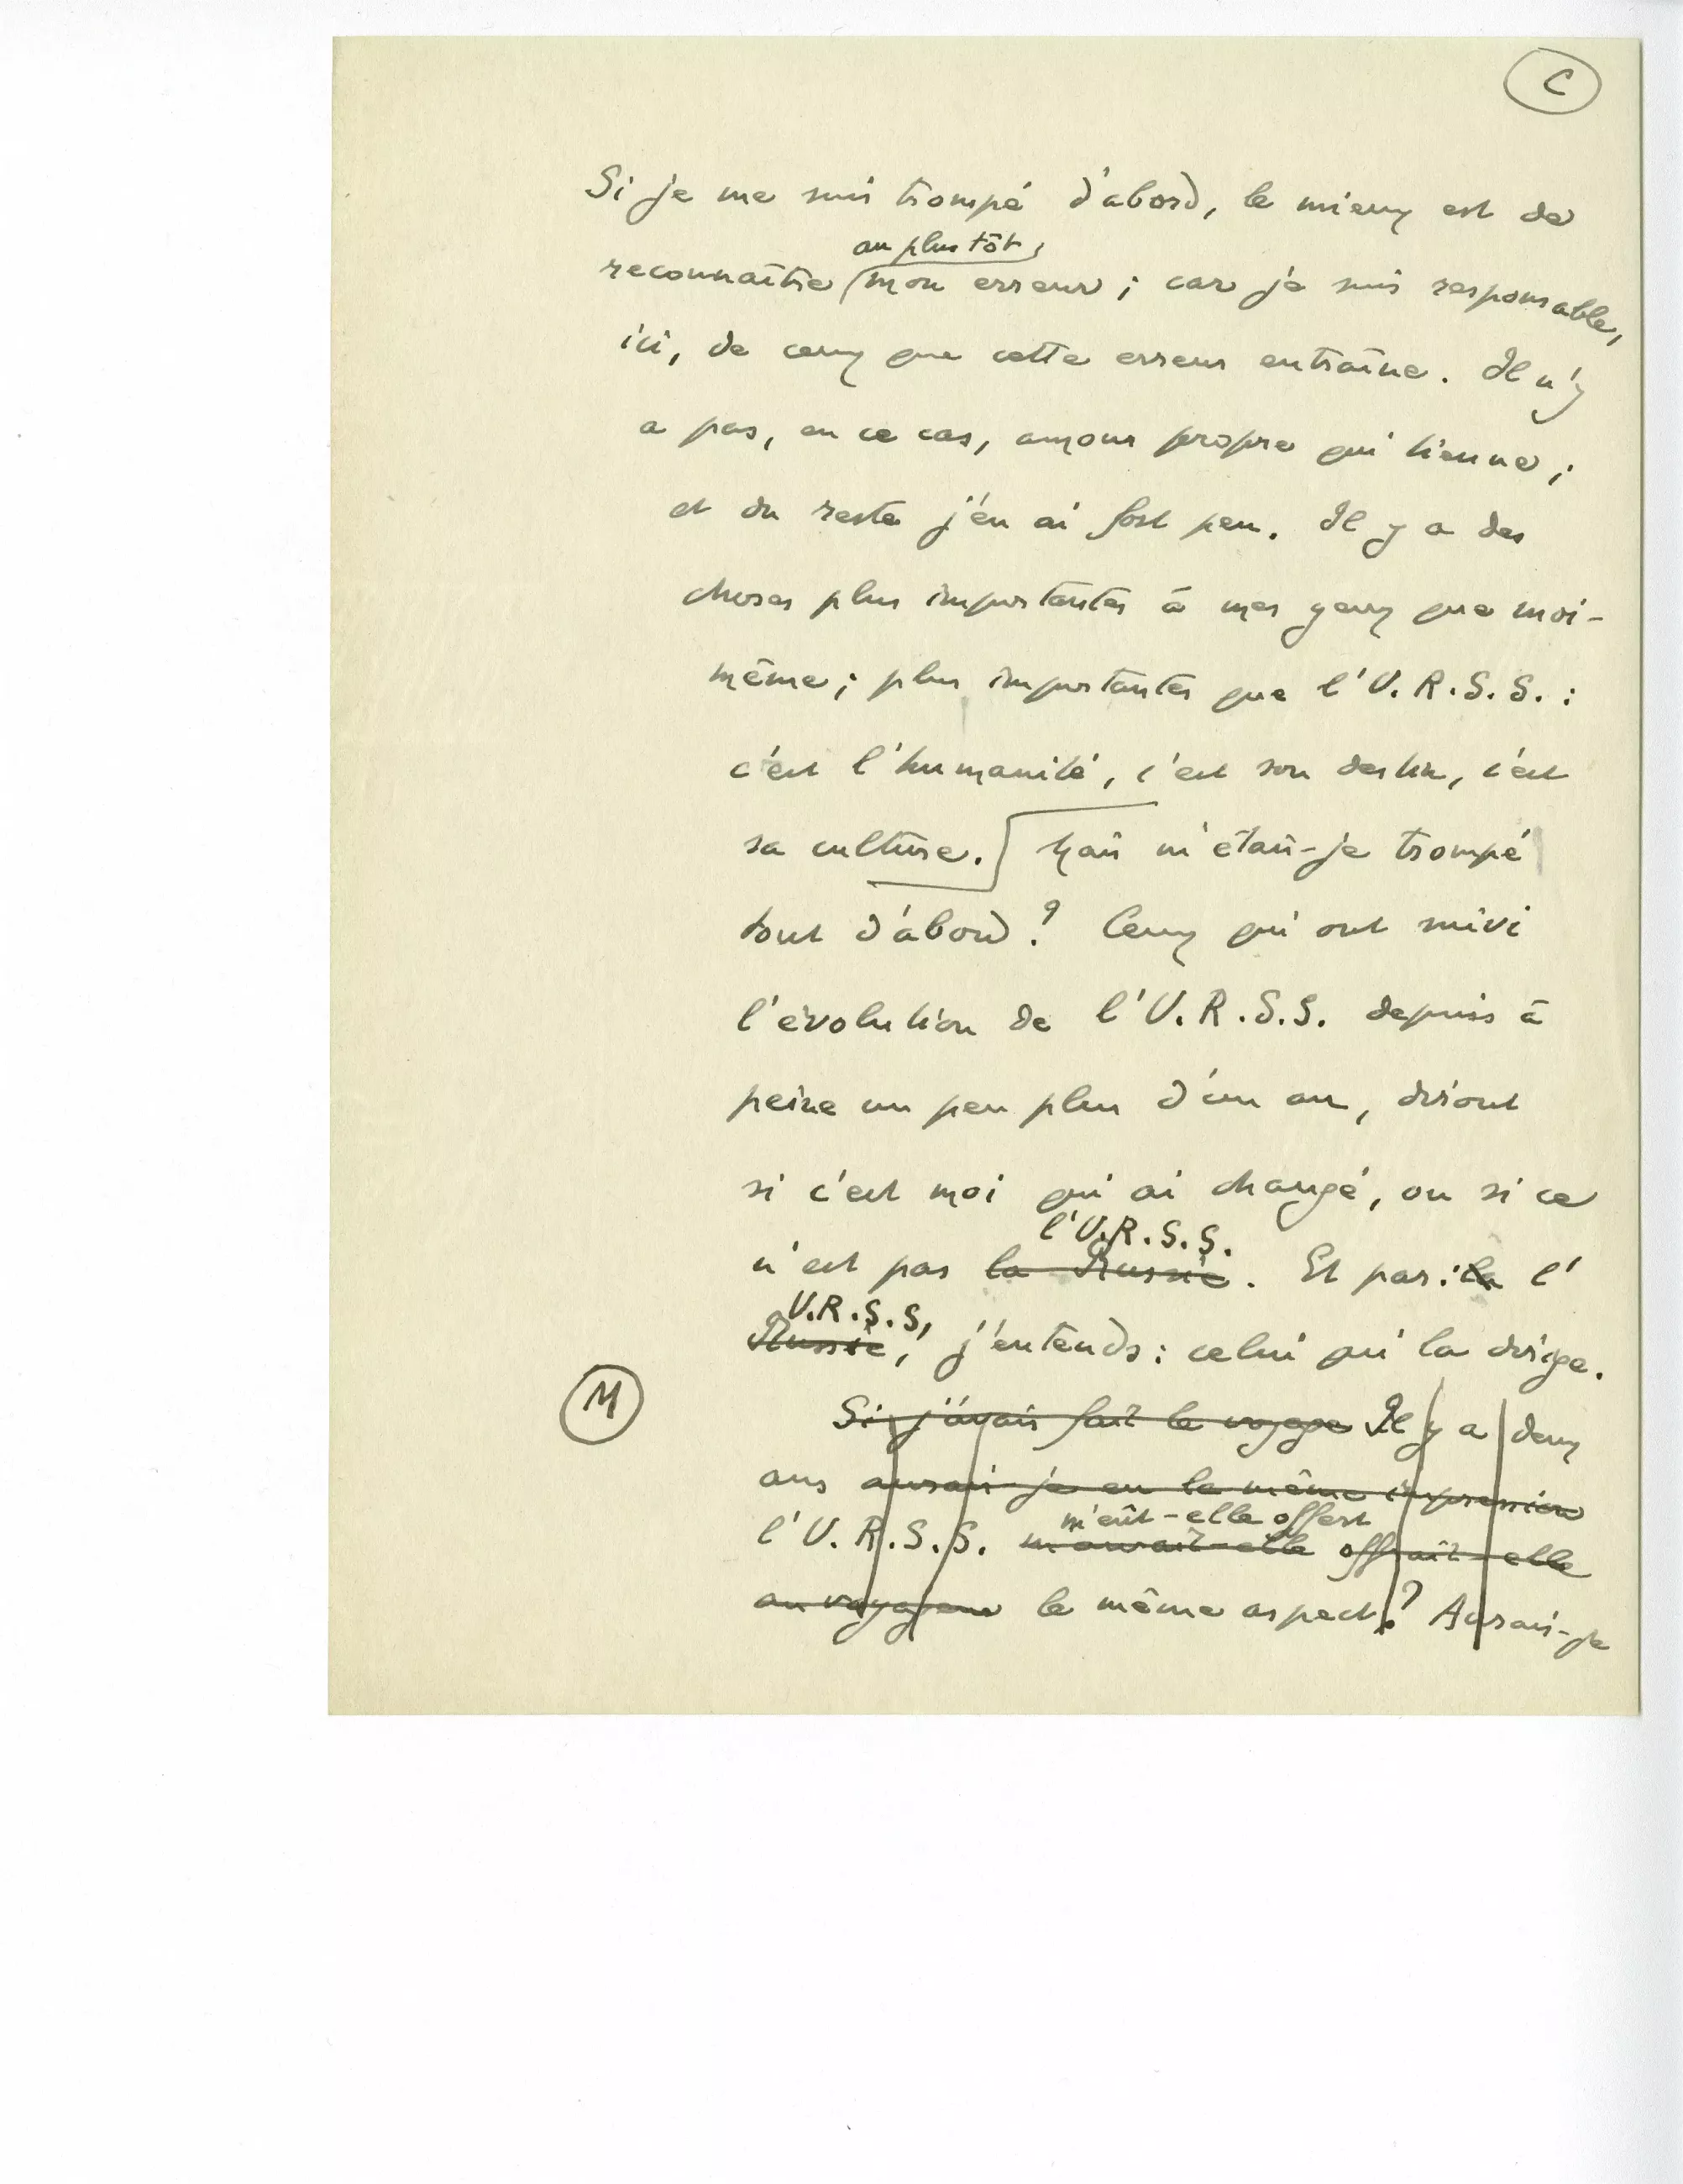 C
Si je me suis trompé d'abord, le mieux est de
au plus tôt
reconnaître mon erreur ; car je suis responsable,
ici, de ceux que cette erreur entraîne. Il n'y
a pas, en ce cas, amour propre qui tienne ;
et du reste j'en ai fort peu. Il y a des
choses plus importantes à mes yeux que moi-
même ; plus importantes que l'U.R.S.S. :
c'est l'humanité, c'est son destin, c'est
sa culture. Mais m'étais-je trompé
tout d'abord ? Ceux qui ont suivi
l'évolution de l'U.R.S.S. depuis à
peine un peu plus d'un an, diront
si c'est moi qui ai changé, ou si ce
l'U.R.S.S.
n'est pas la Russie. Et par : la l'
U.R.S.S,
Russie, j'entends : celui qui la dirige.
M
Si j'avais fait le voyage Il y a deux
ans aurais je eu la même impression
m'eût-elle offert
l'U.R.S.S. m'aurait-elle offrait-elle
au voyageur le même aspect ? Aurais-je